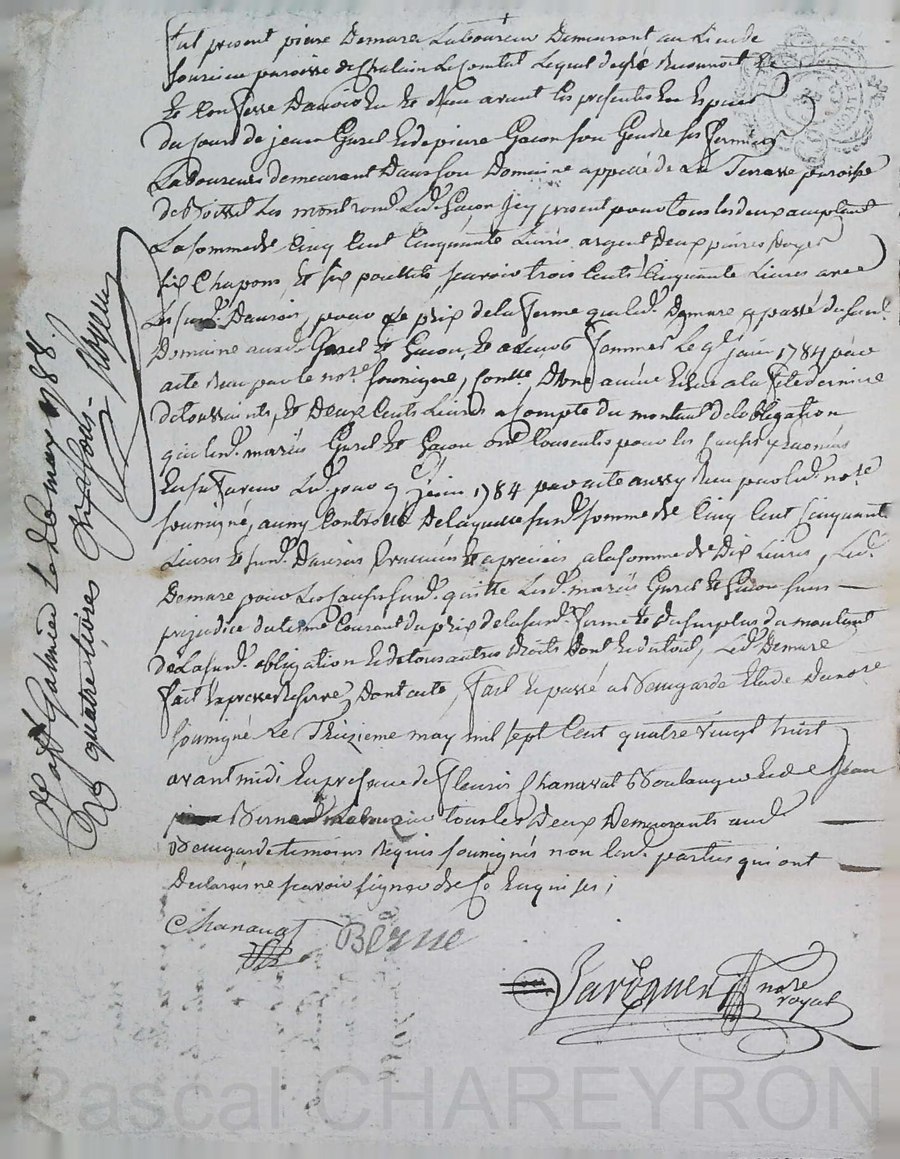 fut present pierre Demare Laboureur Demeurant au Lieu de
paroisse de Chalain Le Comtal Lequel de gré Reconnoit Et
Et Confesse Davoir Eu Et Reçu avant Ces presentes En Especes
du jours de jean Gurel Et de pierre Gacon son Gendre ses fermiers
Laboureurs demeurant Dans son Domaine appellé de La Terrasse paroisse
de Boisset Les montrond Led. Gacon icy present pour tous les deux acceptant
La somme de Cinq Cent Cinquante Livres argent Deux paires
six Chapons Et six poullets sçavoir trois Cents Cinquante Livres avec
Les susd. Danrées pour Le prix de la ferme que led. Demare a passé dususd.
Domaine auxd. Gurel Et Gacon Le 9e juin 1784 par
acte Reçu par le nore soussigné, Contlé D'une année Echue a la fête derniere
detoussaints, Et Deux Cents Livres a Compte du montant de lobligation
que lesd. mariés Gurel Et Gacon ont Consentis pour les
En sa faveur Led. jour 9 juin 1784 par acte aussy Reçu par led. nore
soussigné, aussy Controllé De laquelle susd. somme de Cinq Cent Cinquante
Livres Et susd. Danrées Evaluées Et apreciées a la somme de Dix Livres, Led.
Demare pour Les Causes susd. quitte Lesd. mariés Gurel Et Gacon sans
prejudice du terme Courant du prix de la susd. ferme Et du surplus du montant
de La susd. obligation Et de tous autres Droits Dont Et du tout, Led. Demare
fait Expresse Reserve, Dont acte, fait Et passé a Beauregard Etude Du nore
soussigné Le Treizieme may mil sept Cent quatre vingt huit
avant midi En presence de Fleuris Chanavat Boulanger Et de Jean
Laboureur tous les Deux Demeurants aud.
Beauregard temoins Requis soussignés non Lesd. parties qui ont
Declarés ne sçavoir signer de Ce Enquises ;
Chanavat
Berne
nore
royal
Galmier Le 20 may 1788.
quatre livres
Pascal CHAREYRON